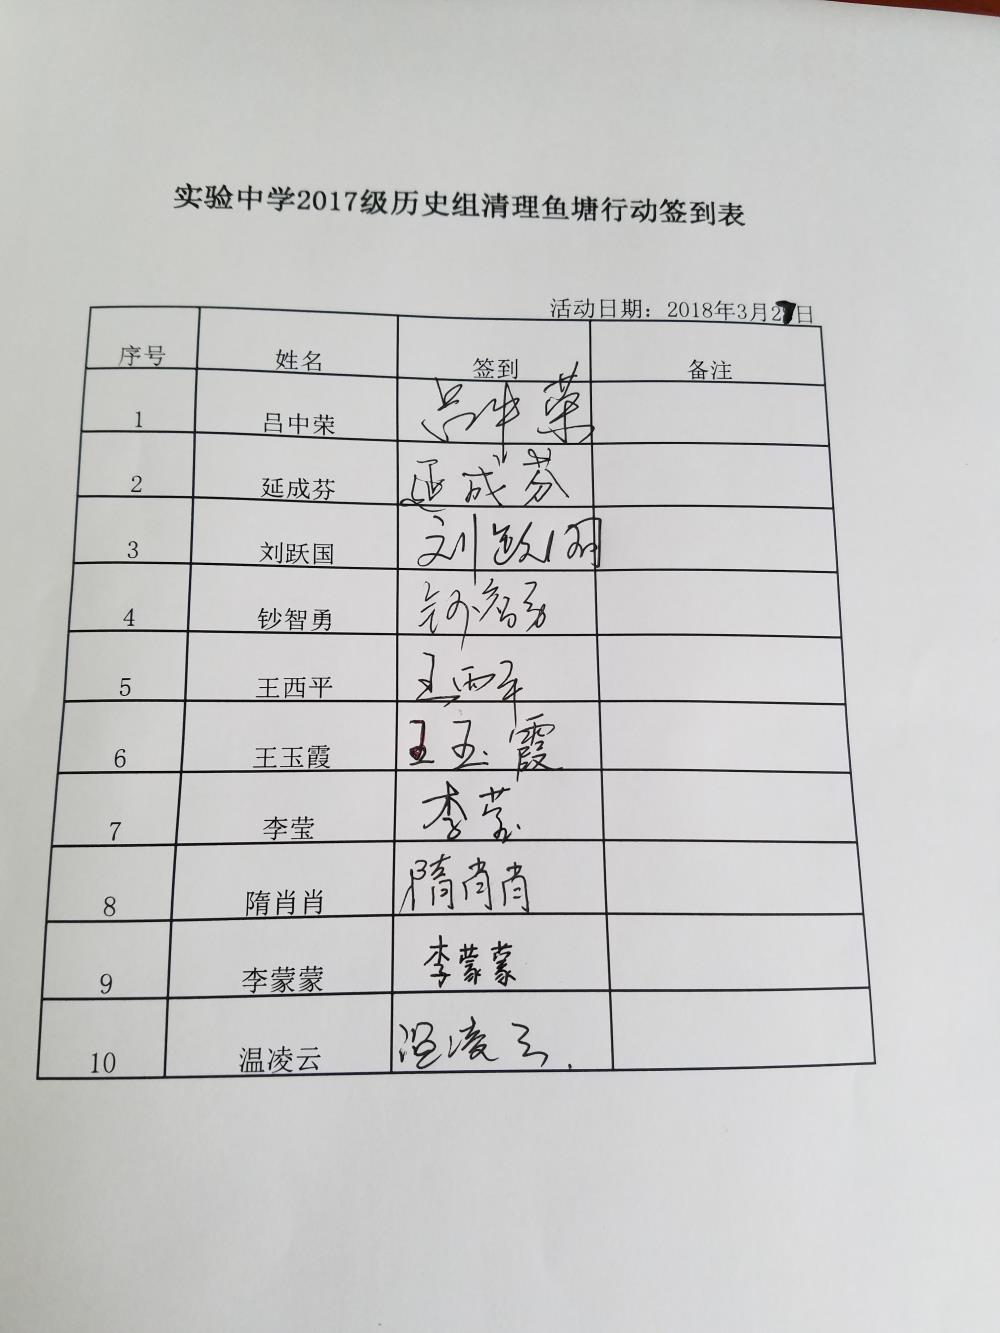 实验中学2017级历史组清理鱼塘行动签到表
活动日期：2018年3月27日
序号 姓名 签到 备注
1 吕中荣 吕中荣
2 延成芬 延成芬
3 刘跃国 刘跃国
4 钞智勇 钞智勇
5 王西平 王西平
6 王玉霞 王玉霞
7 李莹 李莹
8 隋肖肖 隋肖肖
9 李蒙蒙 李蒙蒙
10 温凌云 温凌云